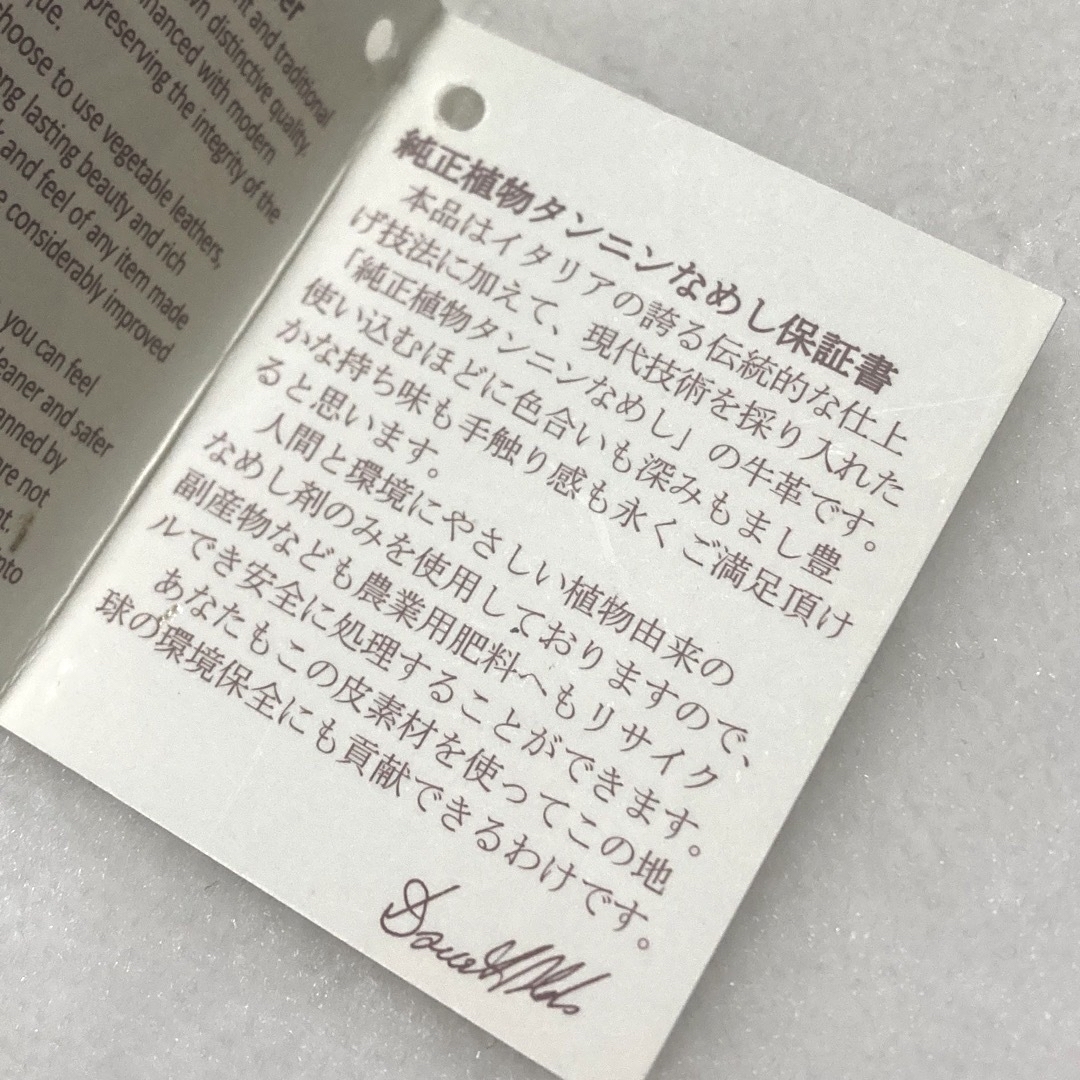 er
nt and traditional
wn distinctive quality.
nhanced with modern
preserving the integrity of the
que.
choose to use vegetable leathers,
ong lasting beauty and rich
k and feel of any item made
e considerably improved
you can feel
eaner and safer
anned by
are not
nt.
into
純正植物タンニンなめし保証書
本品はイタリアの誇る伝統的な仕上
げ技法に加えて、現代技術を採り入れた
「純正植物タンニンなめし」の牛革です。
使い込むほどに色合いも深みもまし豊
かな持ち味も手触り感も永くご満足頂け
ると思います。
人間と環境にやさしい植物由来の
なめし剤のみを使用しておりますので、
副産物なども農業用肥料へもリサイク
ルでき安全に処理することができます。
あなたもこの皮素材を使ってこの地
球の環境保全にも貢献できるわけです。